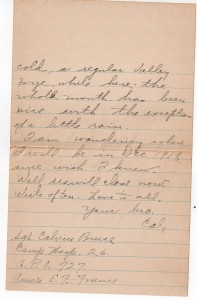 cold, a regular Valley
Forge while here. the
whole month has been
nice with the exception
of a little rain.
I am wondering where
I will be in Dec 1918
sure wish I knew.
Well sis will close now.
Write often. Love to all.
Your bro.
Cal,
Sgt Calvin
Camp Hosp. 26
A.P.O. 727
Amer. E.F. France